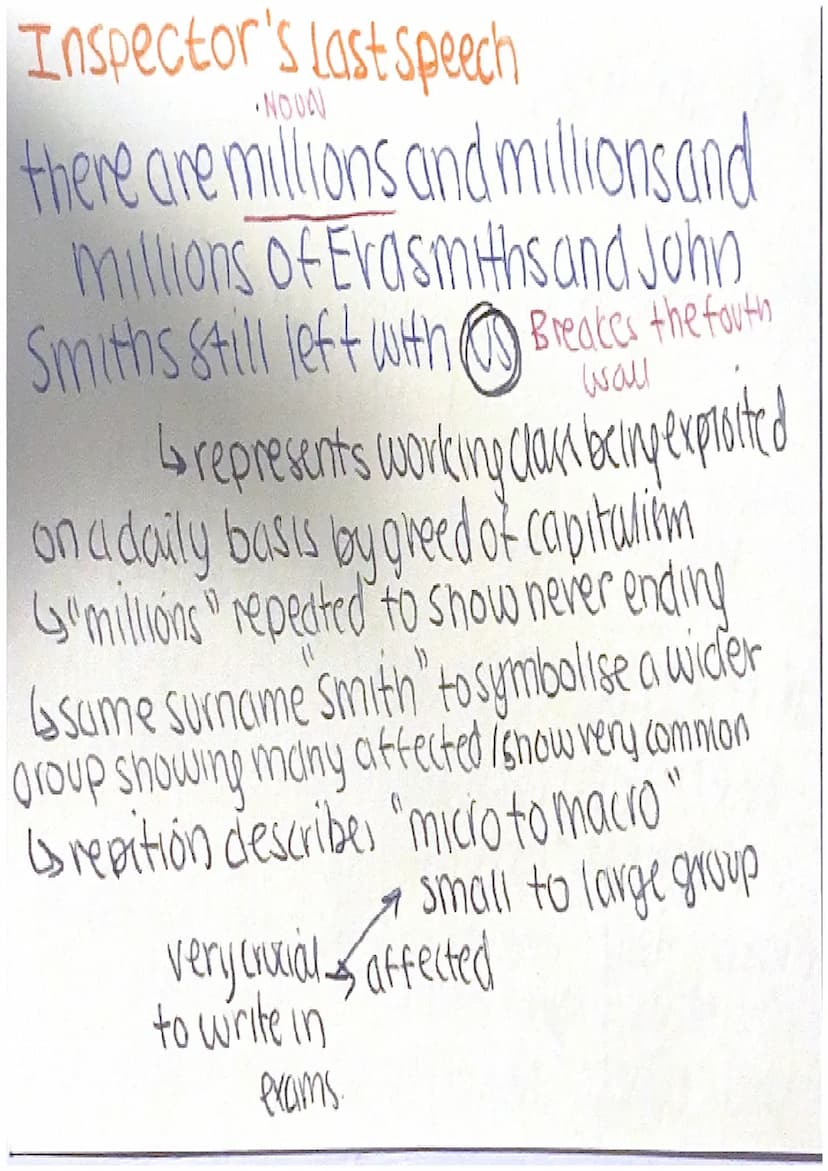 Inspector's Last speech
• NOUN
there are millions and millions and
millions of Eva smiths and John
Smiths still left with us Breakes the fouth
wall
↳ represents working class being exploited
on a daily basis by greed of capitalism
↳ "millions" repeated to show never ending
↳ same surname "Smith" to symbolise a wider
group showing many affected / show very common
↳ repition describes "micro to macro"
small to large group
very crucial → affected
to write in
exams.